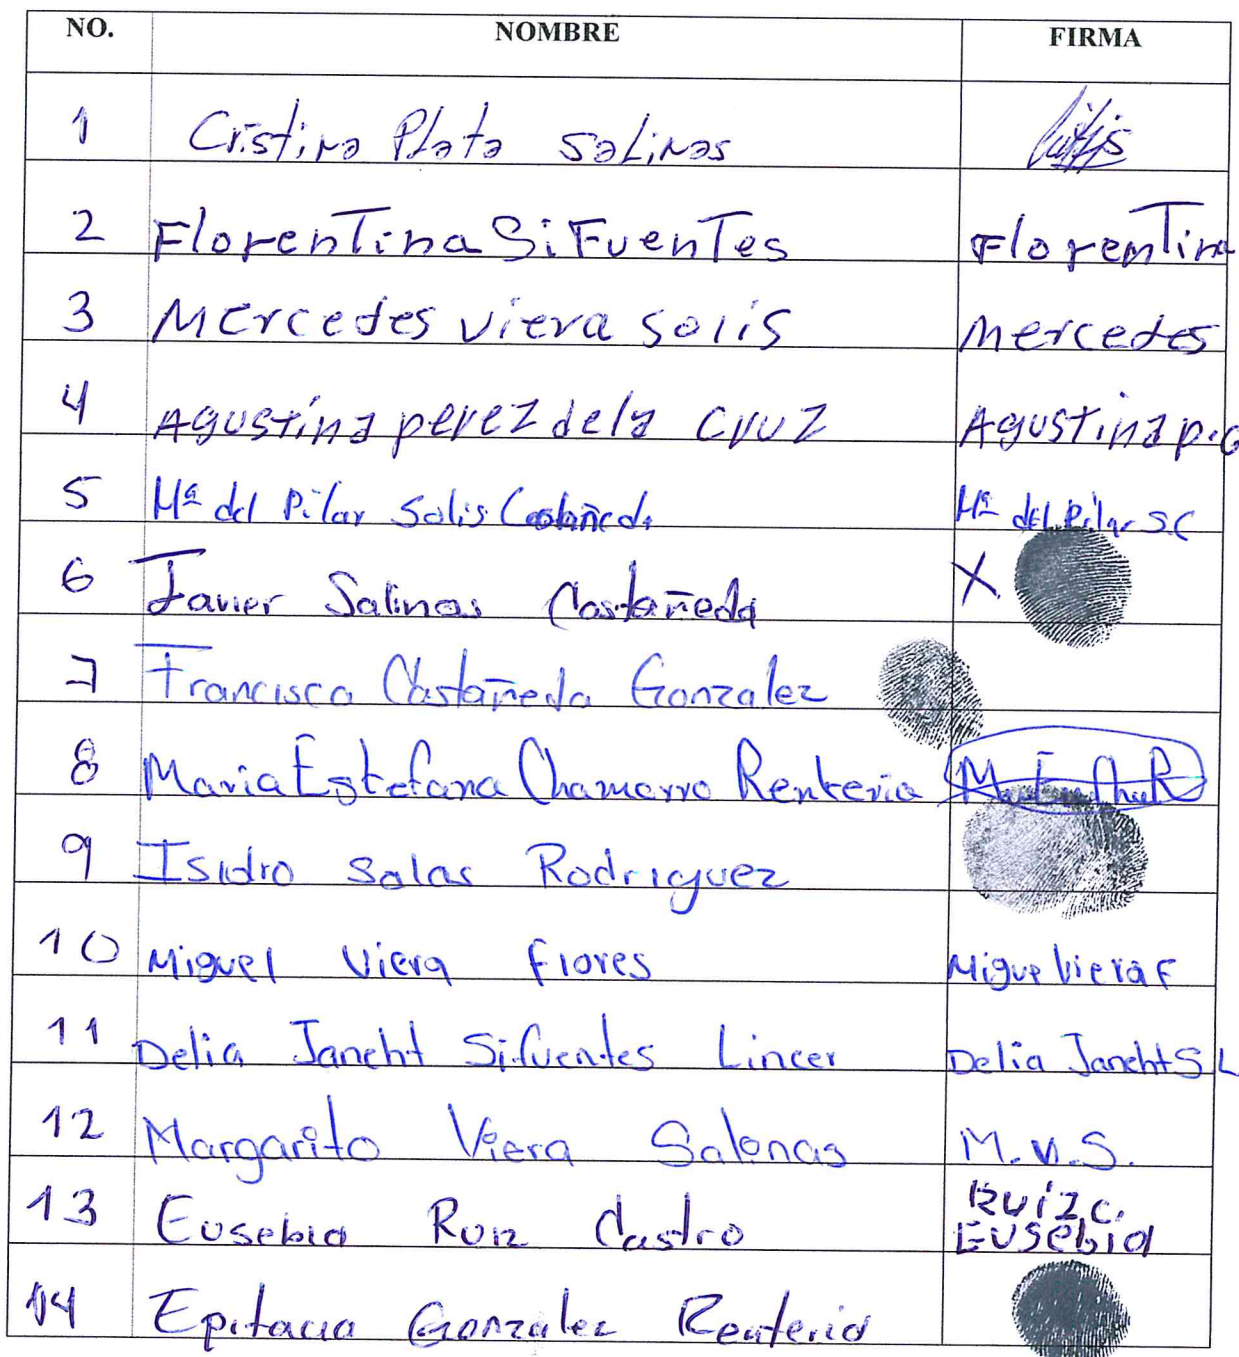 NO. NOMBRE FIRMA
1 Cristina Plata Salinas
2 Florentina Sifuentes Florentina
3 Mercedes viera solis Mercedes
4 Agustina perez dela cruz Agustina p.c
5 Mª del Pilar Solis Castañeda Mª del Pilar S.C
6 Javier Salinas Castañeda X
7 Francisca Castañeda Gonzalez
8 Maria Estefana Chamorro Renteria M. E. Cha R
9 Isidro Salas Rodriguez
10 Miguel Viera flores Migue Viera F
11 Delia Janeht Sifuentes Lincer Delia Janeht S L
12 Margarito Viera Salonas M.V.S.
13 Eusebia Ruiz Castro Ruiz c.
Eusebia
14 Epitacia Gonzalez Renteria